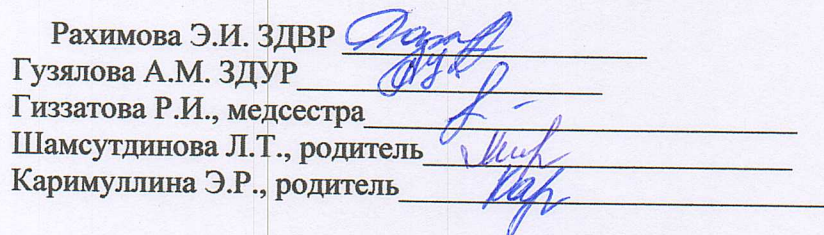 Рахимова Э.И. ЗДВР
Гузялова А.М. ЗДУР
Гиззатова Р.И., медсестра
Шамсутдинова Л.Т., родитель
Каримуллина Э.Р., родитель